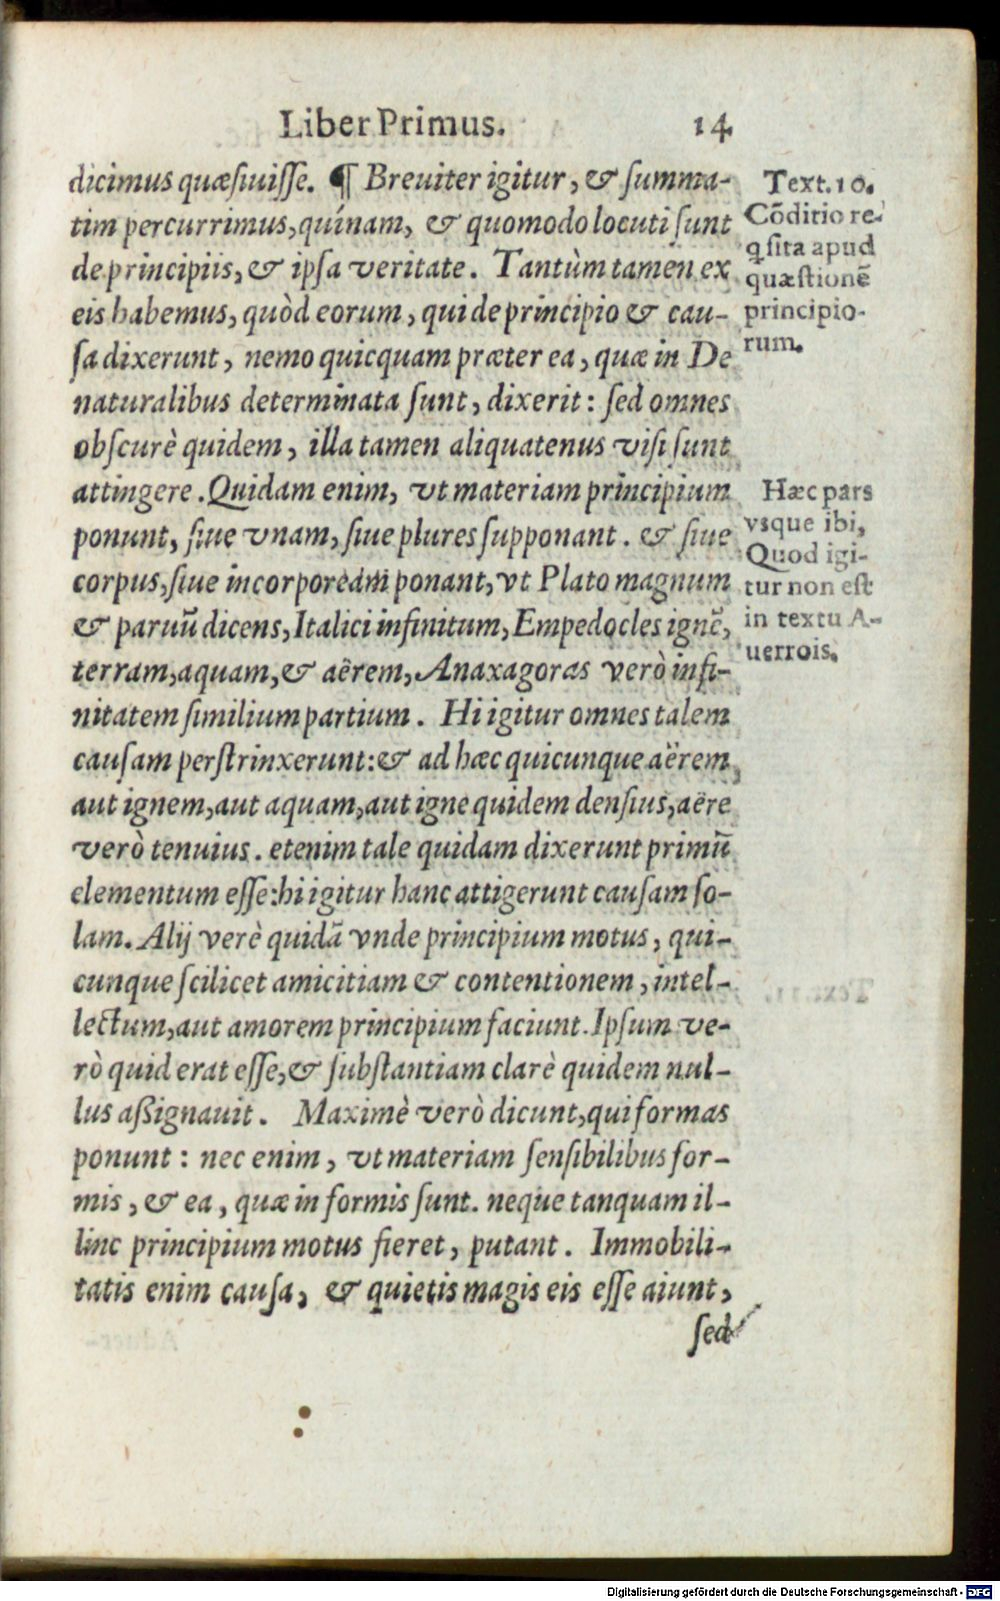 Liber Primus. 14
dicimus quæsiuisse. ¶ Breuiter igitur, & summa-
tim percurrimus, quínam, & quomodo locuti sunt
de principiis, & ipsa veritate. Tantùm tamen ex
eis habemus, quòd eorum, qui de principio & cau-
sa dixerunt, nemo quicquam præter ea, quæ in De
naturalibus determinata sunt, dixerit: sed omnes
obscurè quidem, illa tamen aliquatenus visi sunt
attingere. Quidam enim, vt materiam principium
ponunt, siue vnam, siue plures supponant. & siue
corpus, siue incorporeám ponant, vt Plato magnum
& paruũ dicens, Italici infinitum, Empedocles ignẽ,
terram, aquam, & aërem, Anaxagoras verò infi-
nitatem similium partium. Hi igitur omnes talem
causam perstrinxerunt: & ad hæc quicunque aërem,
aut ignem, aut aquam, aut igne quidem densius, aëre
verò tenuius. etenim tale quidam dixerunt primũ
elementum esse: hi igitur hanc attigerunt causam so-
lam. Alij verè quidã vnde principium motus, qui-
cunque scilicet amicitiam & contentionem, intel-
lectum, aut amorem principium faciunt. Ipsum ve-
rò quid erat esse, & substantiam clarè quidem nul-
lus aßignauit. Maximè verò dicunt, qui formas
ponunt: nec enim, vt materiam sensibilibus for-
mis, & ea, quæ in formis sunt. neque tanquam il-
linc principium motus fieret, putant. Immobili-
tatis enim causa, & quietis magis eis esse aiunt,
sed
Text. 10.
Cõditio re-
q̃sita apud
quæstionẽ
principio-
rum.
Hæc pars
vsque ibi,
Quod igi-
tur non est
in textu A-
uerrois.
Digitalisierung gefördert durch die Deutsche Forschungsgemeinschaft - DFG